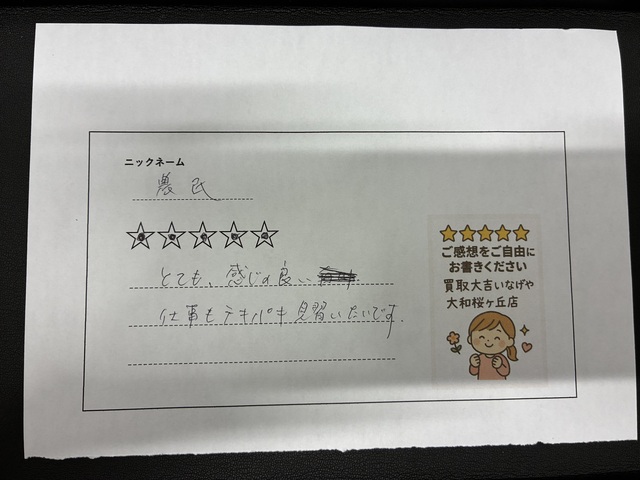 ニックネーム
農民
とても、感じの良い
仕事もテキパキ見習いたいです.
ご感想をご自由に
お書きください
買取大吉いなげや
大和桜ヶ丘店